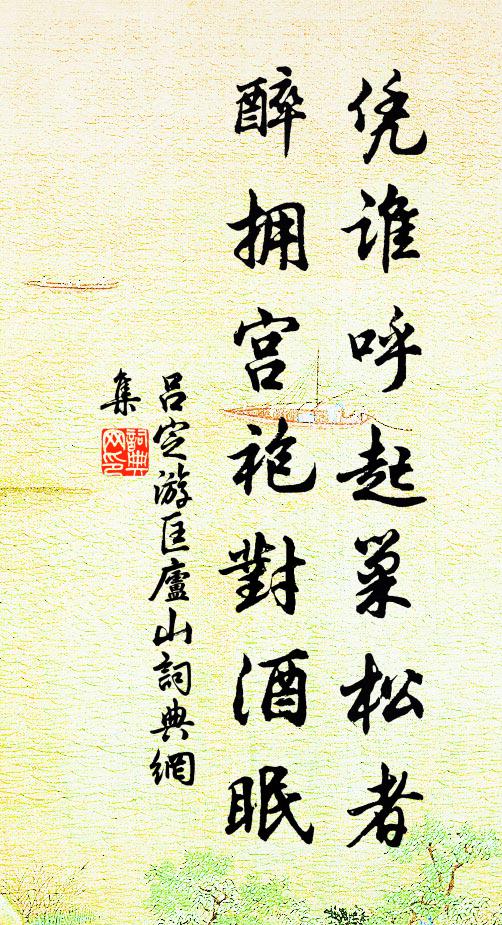 凭谁呼起巢松者
醉拥宫袍對酒眠
吕定游匡廬山詞典網
集
詞典
网印